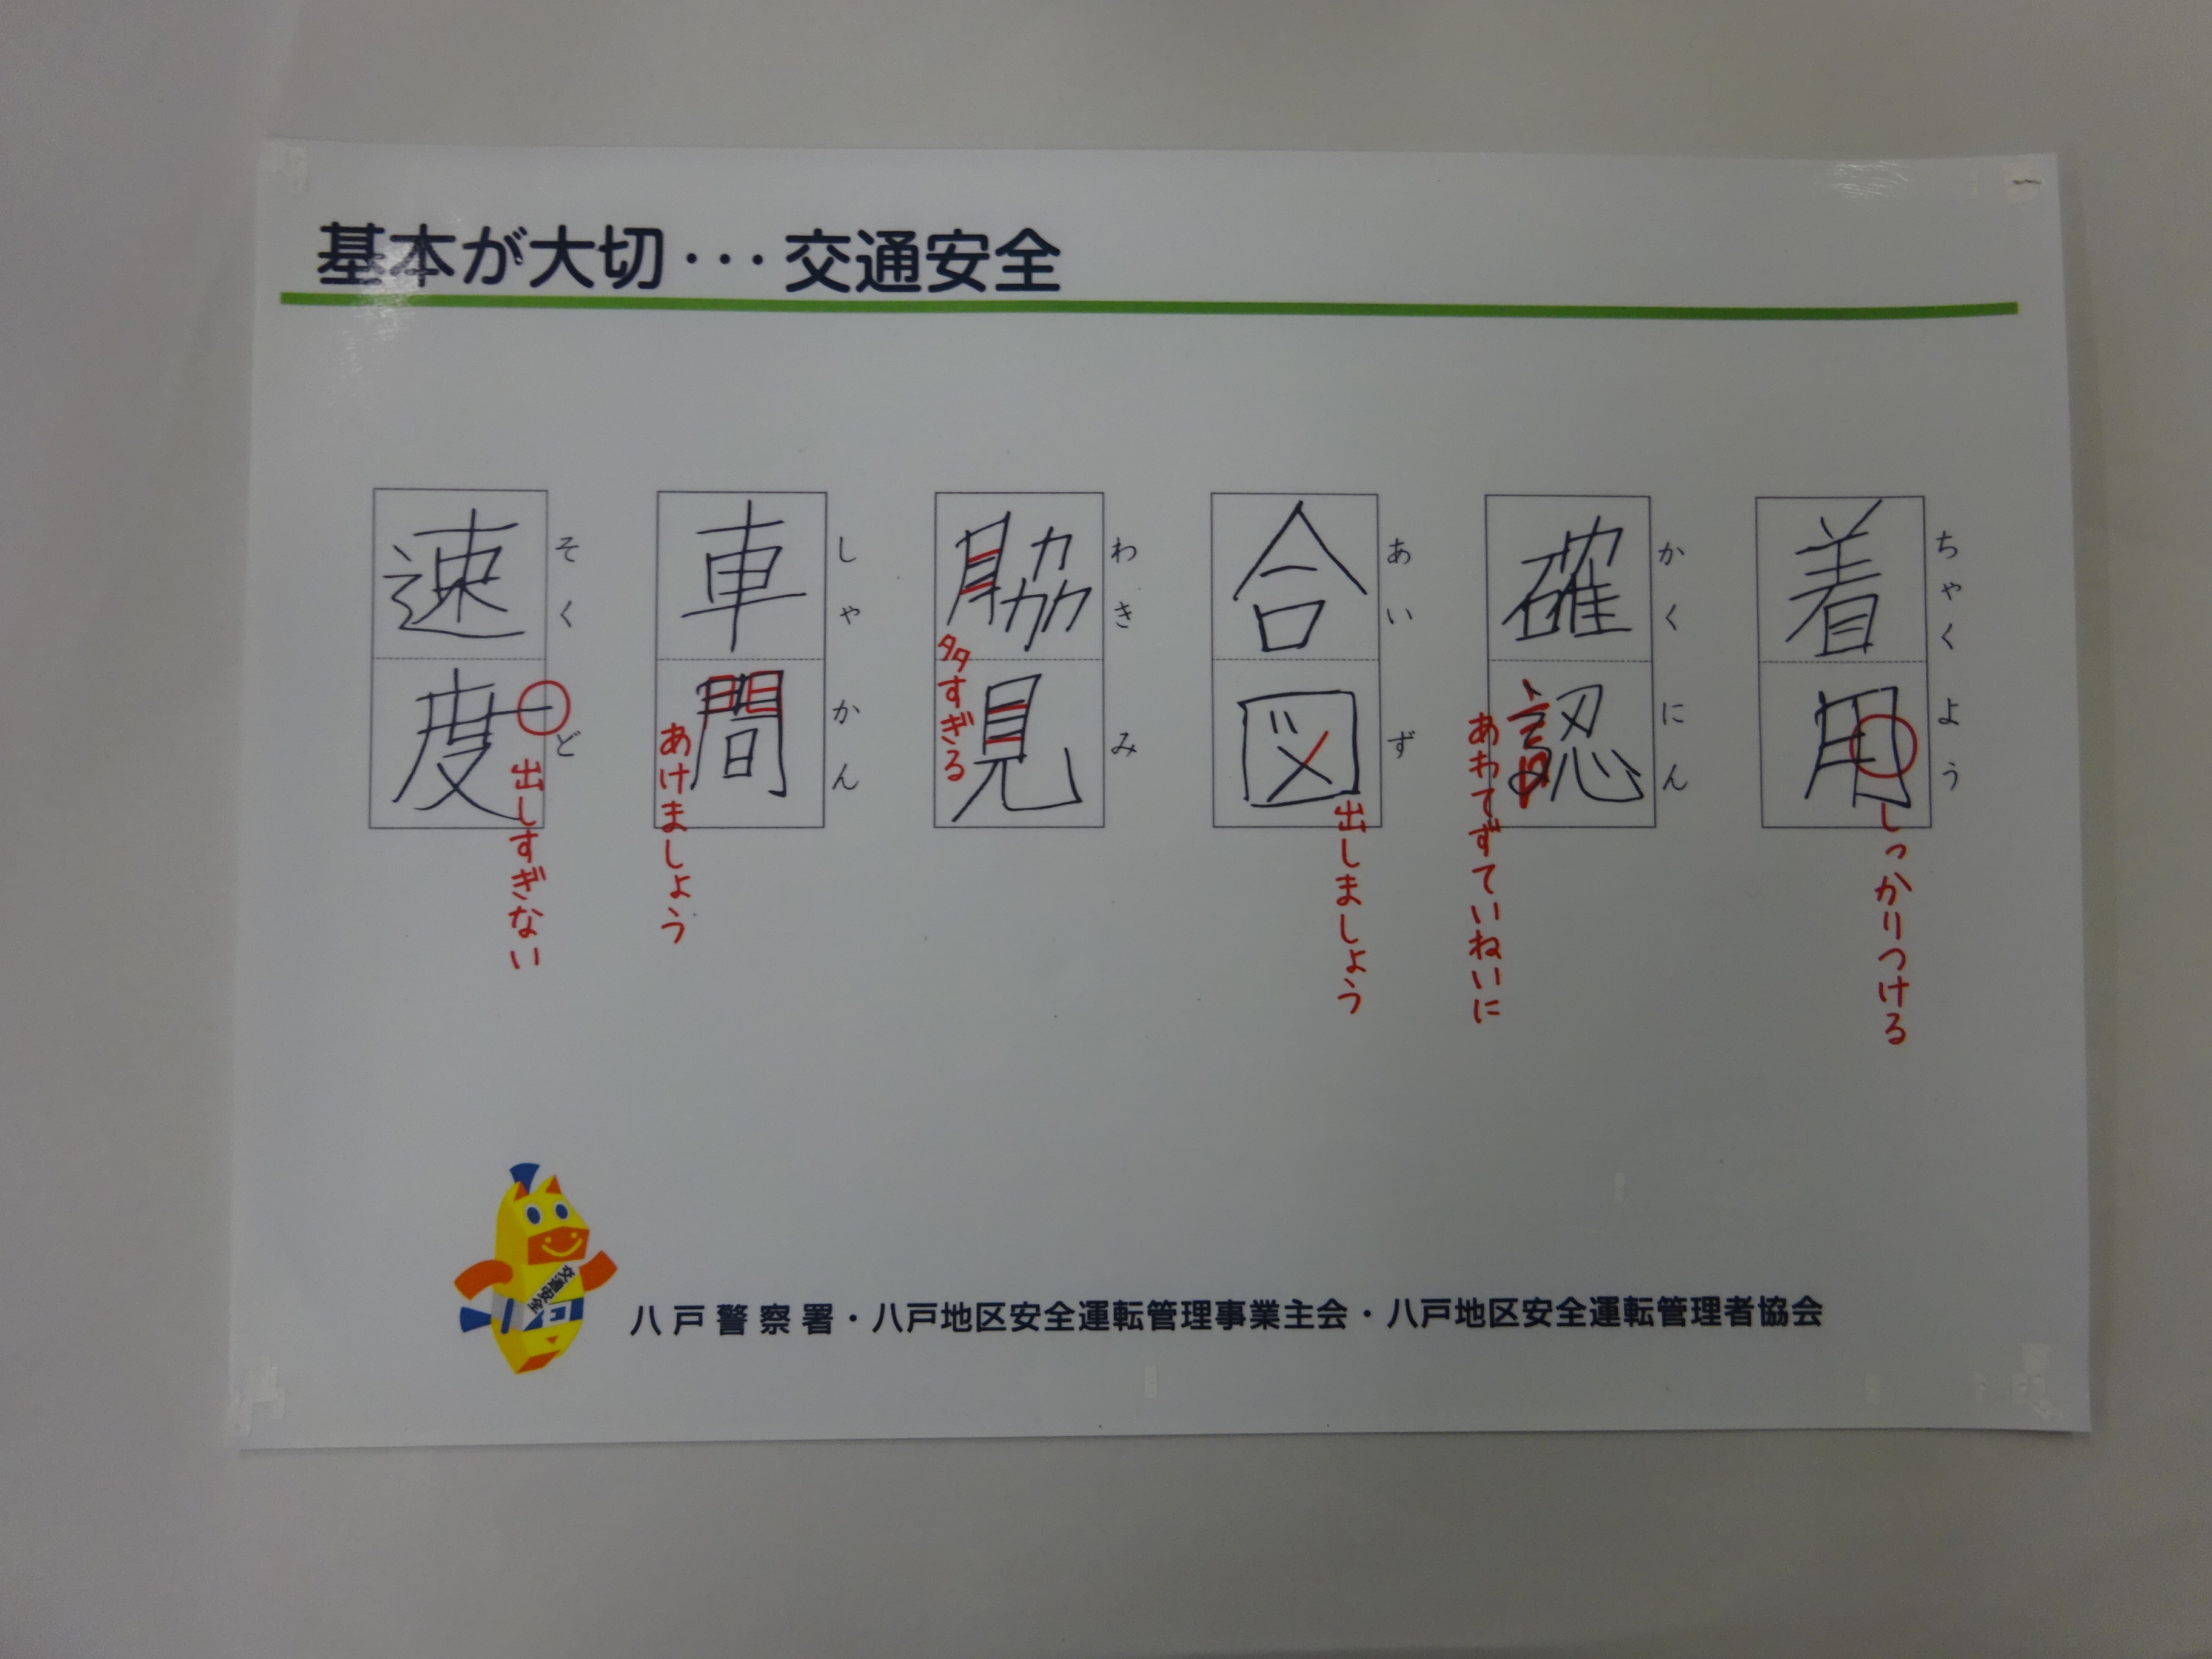 基本が大切・・・交通安全
着用
ちゃくよう
しっかりつける
確認
かくにん
あわてずていねいに
合図
あいず
出しましょう
脇見
わきみ
多すぎる
車間
しゃかん
あけましょう
速度
そくど
出しすぎない
交通安全
八戸警察署・八戸地区安全運転管理事業主会・八戸地区安全運転管理者協会